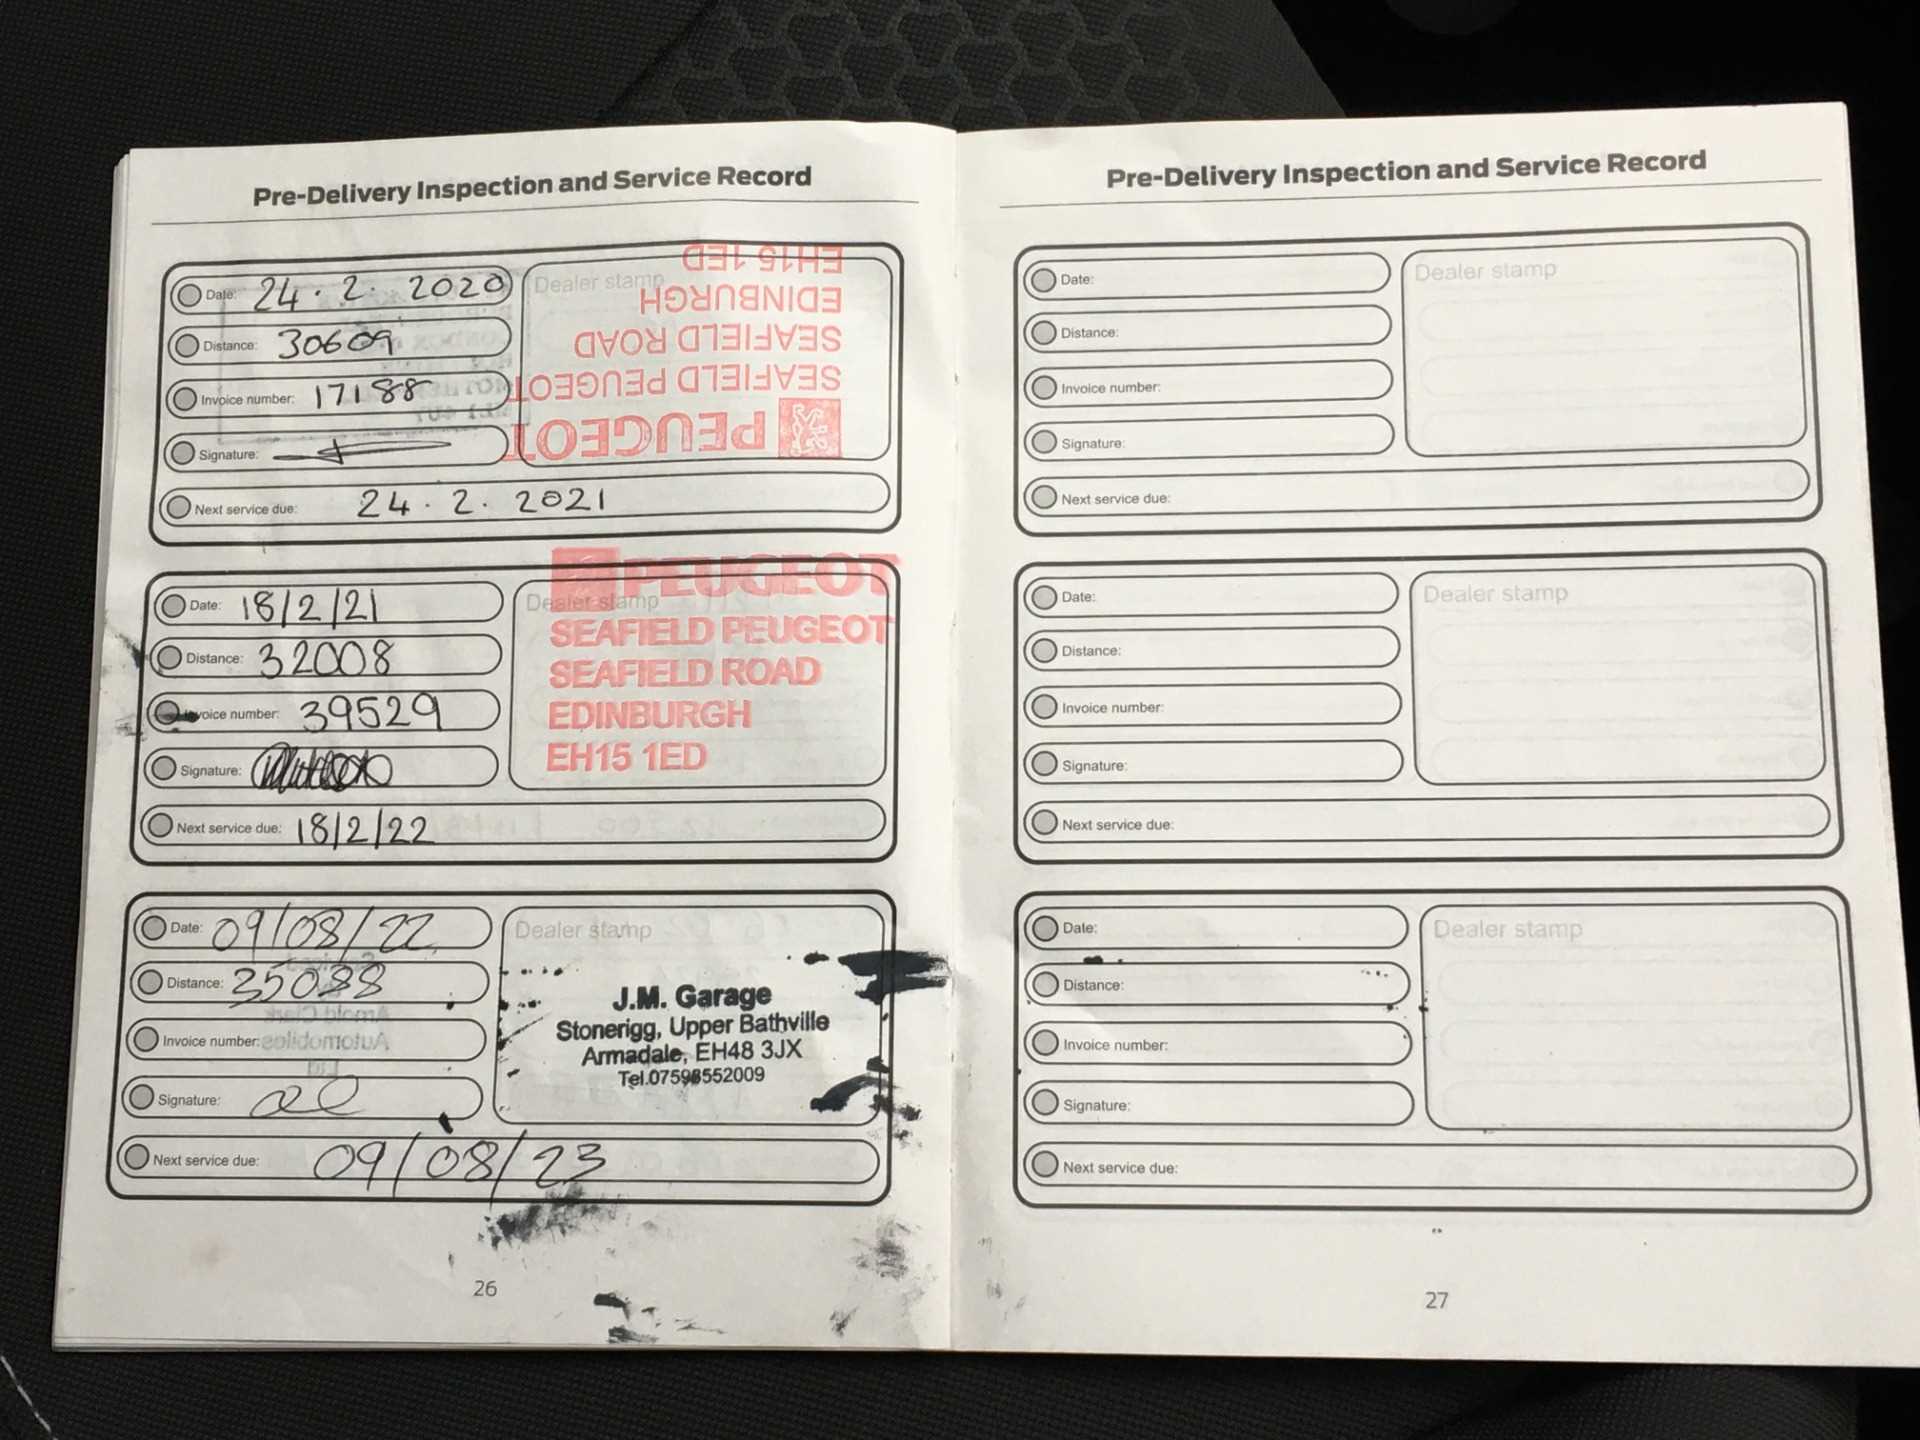 Pre-Delivery Inspection and Service Record
Date: 24. 2. 2020
Distance: 30609
Invoice number: 17188
Signature:
Next service due: 24. 2. 2021
Dealer stamp
PEUGEOT
SEAFIELD PEUGEOT
SEAFIELD ROAD
EDINBURGH
EH15 1ED
Date: 18/2/21
Distance: 32008
Invoice number: 39529
Signature:
Next service due: 18/2/22
Dealer stamp
PEUGEOT
SEAFIELD PEUGEOT
SEAFIELD ROAD
EDINBURGH
EH15 1ED
Date: 09/08/22
Distance: 35088
Invoice number:
Signature:
Next service due: 09/08/23
Dealer stamp
J.M. Garage
Stonerigg, Upper Bathville
Armadale, EH48 3JX
Tel.07598552009
26
Pre-Delivery Inspection and Service Record
Date:
Distance:
Invoice number:
Signature:
Next service due:
Dealer stamp
Date:
Distance:
Invoice number:
Signature:
Next service due:
Dealer stamp
Date:
Distance:
Invoice number:
Signature:
Next service due:
Dealer stamp
27